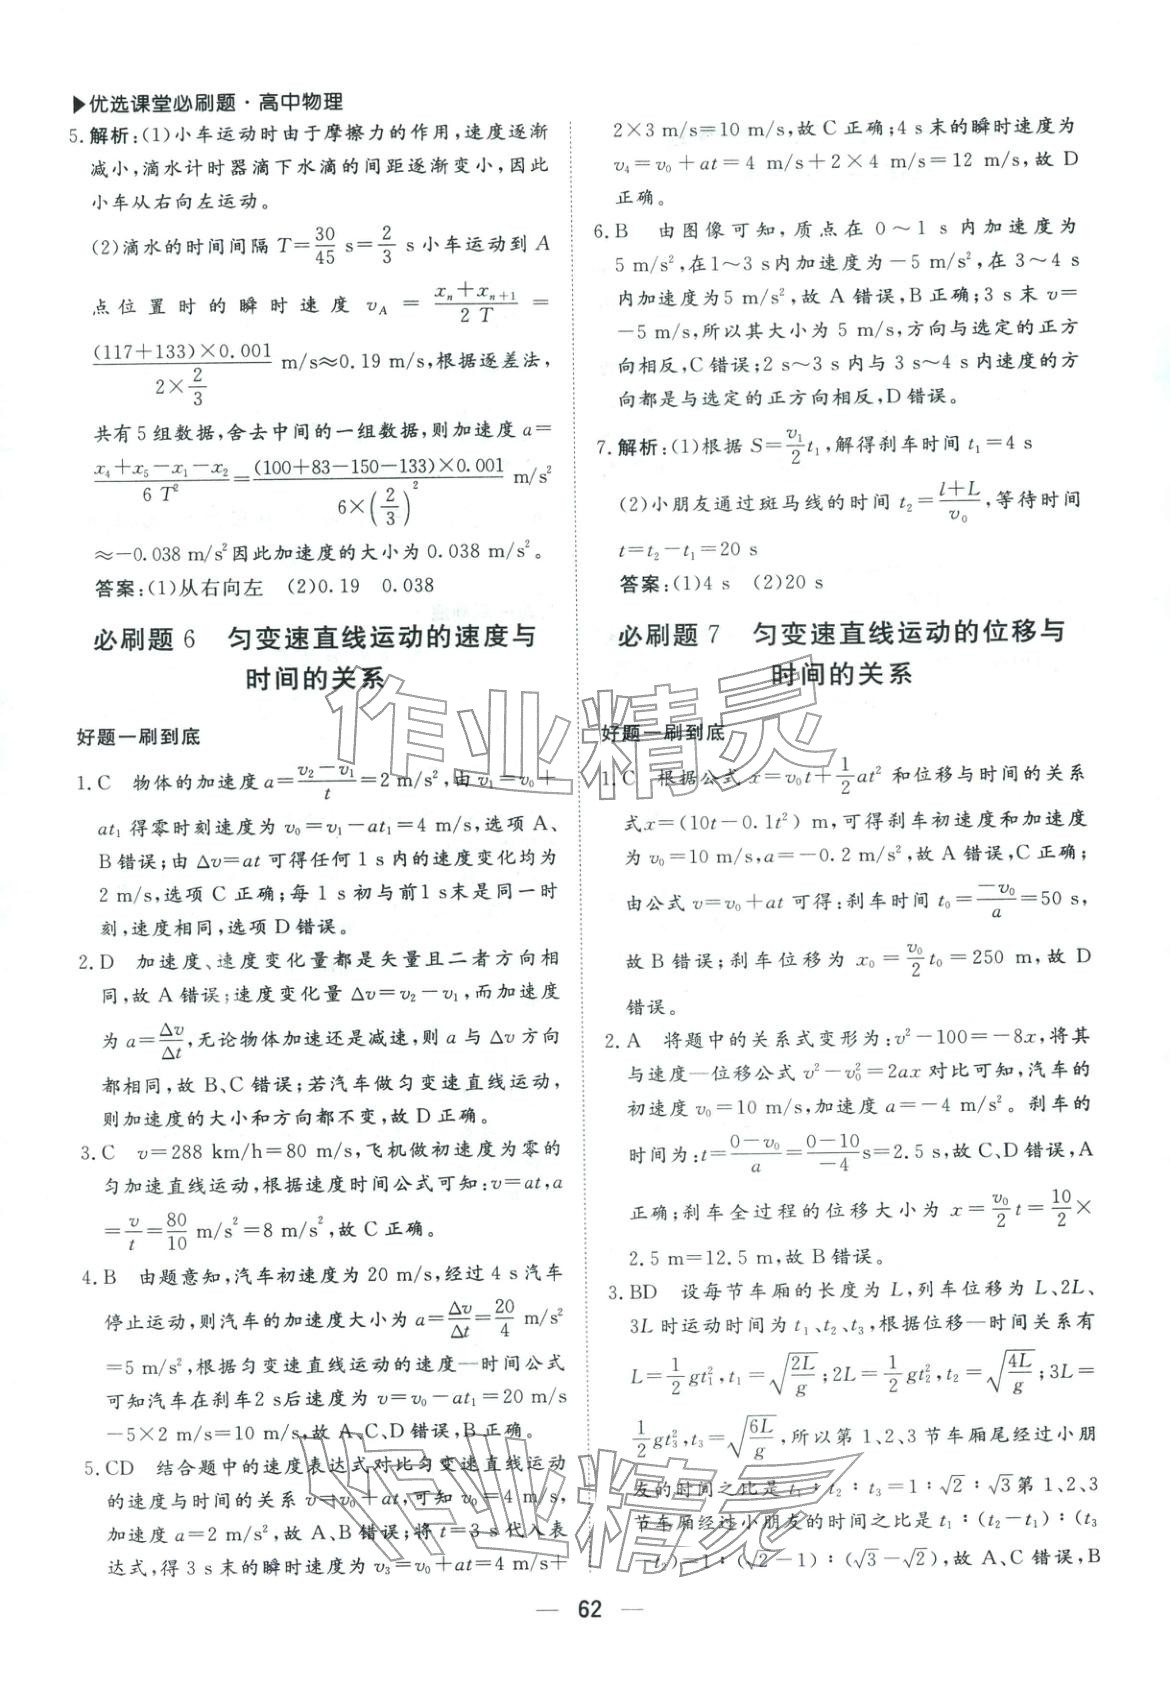 ▶优选课堂必刷题·高中物理
5. 解析:(1)小车运动时由于摩擦力的作用,速度逐渐
减小,滴水计时器滴下水滴的间距逐渐变小,因此
小车从右向左运动。
(2)滴水的时间间隔 T=30/45 s=2/3 s 小车运动到 A
点位置时的瞬时速度 v_A = (x_n+x_{n+1})/(2T) =
(117+133)×0.001/(2×2/3) m/s≈0.19 m/s,根据逐差法,
共有5组数据,舍去中间的一组数据,则加速度 a=
(x₄+x₅-x₁-x₂)/(6T²)=(100+83-150-133)×0.001/(6×(2/3)²) m/s²
≈-0.038 m/s²因此加速度的大小为 0.038 m/s²。
答案:(1)从右向左 (2)0.19 0.038
必刷题 6 匀变速直线运动的速度与
时间的关系
好题一刷到底
1. C 物体的加速度 a=(v₂-v₁)/t=2 m/s²,由 v₁=v₀+
at₁ 得零时刻速度为 v₀=v₁-at₁=4 m/s,选项 A、
B错误;由 Δv=at 可得任何 1 s 内的速度变化均为
2 m/s,选项 C 正确;每 1 s 初与前 1 s末是同一时
刻,速度相同,选项 D错误。
2. D 加速度、速度变化量都是矢量且二者方向相
同,故 A 错误;速度变化量 Δv=v₂-v₁,而加速度
为 a=Δv/Δt,无论物体加速还是减速,则 a 与 Δv 方向
都相同,故 B、C 错误;若汽车做匀变速直线运动,
则加速度的大小和方向都不变,故 D 正确。
3. C v=288 km/h=80 m/s,飞机做初速度为零的
匀加速直线运动,根据速度时间公式可知:v=at,a
=v/t=80/10 m/s²=8 m/s²,故 C 正确。
4. B 由题意知,汽车初速度为 20 m/s,经过 4 s汽车
停止运动,则汽车的加速度大小为 a=Δv/Δt=20/4 m/s²
=5 m/s²,根据匀变速直线运动的速度—时间公式
可知汽车在刹车2 s后速度为 v=v₀-at₁=20 m/s
-5×2 m/s=10 m/s,故 A、C、D 错误,B 正确。
5. CD 结合题中的速度表达式对比匀变速直线运动
的速度与时间的关系 v=v₀+at,可知 v₀=4 m/s,
加速度 a=2 m/s²,故 A、B 错误;将 t=3 s代入表
达式,得 3 s 末的瞬时速度为 v₃=v₀+at=4 m/s+
2×3 m/s=10 m/s,故 C 正确;4 s 末的瞬时速度为
v₄=v₀+at=4 m/s+2×4 m/s=12 m/s,故 D
正确。
6. B 由图像可知,质点在 0～1 s 内加速度为
5 m/s²,在1～3 s内加速度为-5 m/s²,在 3～4 s
内加速度为5 m/s²,故 A 错误,B正确;3 s 末 v=
-5 m/s,所以其大小为 5 m/s,方向与选定的正方
向相反,C 错误;2 s～3 s 内与 3 s～4 s 内速度的方
向都是与选定的正方向相反,D错误。
7. 解析:(1)根据 S=v₁/2 t₁,解得刹车时间 t₁=4 s
(2)小朋友通过斑马线的时间 t₂=(l+L)/v₀,等待时间
t=t₂-t₁=20 s
答案:(1)4 s (2)20 s
必刷题 7 匀变速直线运动的位移与
时间的关系
好题一刷到底
1. C 根据公式 x=v₀t+1/2 at² 和位移与时间的关系
式x=(10t-0.1t²) m,可得刹车初速度和加速度
为 v₀=10 m/s,a=-0.2 m/s²,故 A 错误,C正确;
由公式 v=v₀+at 可得:刹车时间 t₀=-v₀/a=50 s,
故 B 错误;刹车位移为 x₀=v₀/2 t₀=250 m,故 D
错误。
2. A 将题中的关系式变形为:v²-100=-8x,将其
与速度—位移公式 v²-v₀²=2ax 对比可知,汽车的
初速度 v₀=10 m/s,加速度 a=-4 m/s²。刹车的
时间为:t=(0-v₀)/a=(0-10)/-4 s=2.5 s,故 C、D 错误,A
正确;刹车全过程的位移大小为 x=v₀/2 t=10/2×
2.5 m=12.5 m,故 B 错误。
3. BD 设每节车厢的长度为 L,列车位移为 L、2L、
3L 时运动时间为 t₁、t₂、t₃,根据位移—时间关系有
L=1/2 gt₁²,t₁=√(2L/g);2L=1/2 gt₂²,t₂=√(4L/g);3L=
1/2 gt₃²,t₃=√(6L/g),所以第 1、2、3 节车厢尾经过小朋
友的时间之比是 t₁∶t₂∶t₃=1∶√2∶√3第 1、2、3
节车厢经过小朋友的时间之比是 t₁∶(t₂-t₁)∶(t₃
-t₂)=1∶(√2-1)∶(√3-√2),故 A、C 错误,B
— 62 —
作业精灵
作业精灵